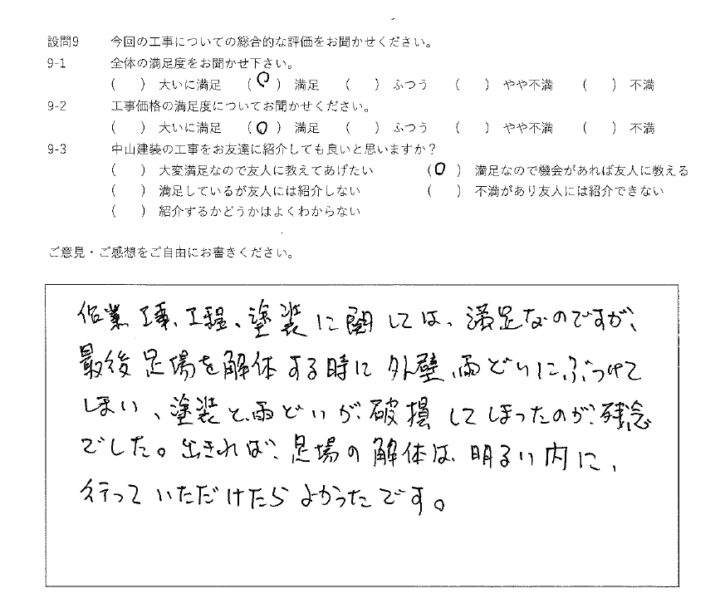 設問9 今回の工事についての総合的な評価をお聞かせください。
9-1 全体の満足度をお聞かせ下さい。
( ) 大いに満足 (○) 満足 ( ) ふつう ( ) やや不満 ( ) 不満
9-2 工事価格の満足度についてお聞かせください。
( ) 大いに満足 (○) 満足 ( ) ふつう ( ) やや不満 ( ) 不満
9-3 中山建装の工事をお友達に紹介しても良いと思いますか？
( ) 大変満足なので友人に教えてあげたい (○) 満足なので機会があれば友人に教える
( ) 満足しているが友人には紹介しない ( ) 不満があり友人には紹介できない
( ) 紹介するかどうかはよくわからない
ご意見・ご感想をご自由にお書きください。
作業工事、工程、塗装に関しては、満足なのですが、
最後足場を解体する時に外壁、雨どいにぶつけて
しまい、塗装と、雨どいが、破損してしまったのが、残念
でした。出きれば、足場の解体は、明るい内に、
行っていただけたらよかったです。